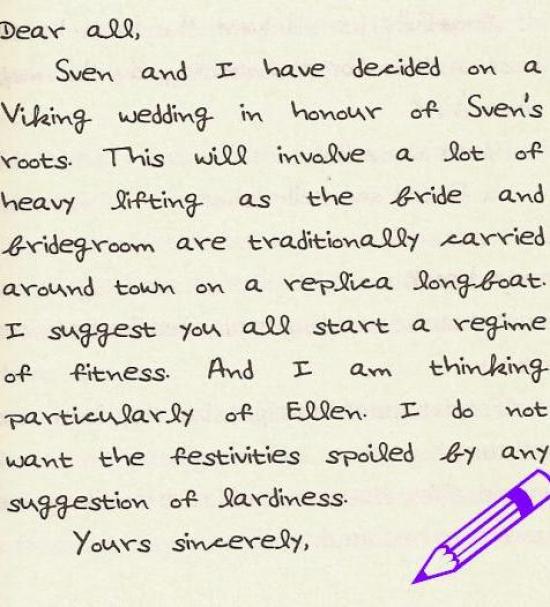 Dear all,
Sven and I have decided on a
Viking wedding in honour of Sven's
roots. This will involve a lot of
heavy lifting as the bride and
bridegroom are traditionally carried
around town on a replica longboat.
I suggest you all start a regime
of fitness. And I am thinking
particularly of Ellen. I do not
want the festivities spoiled by any
suggestion of lardiness.
Yours sincerely,